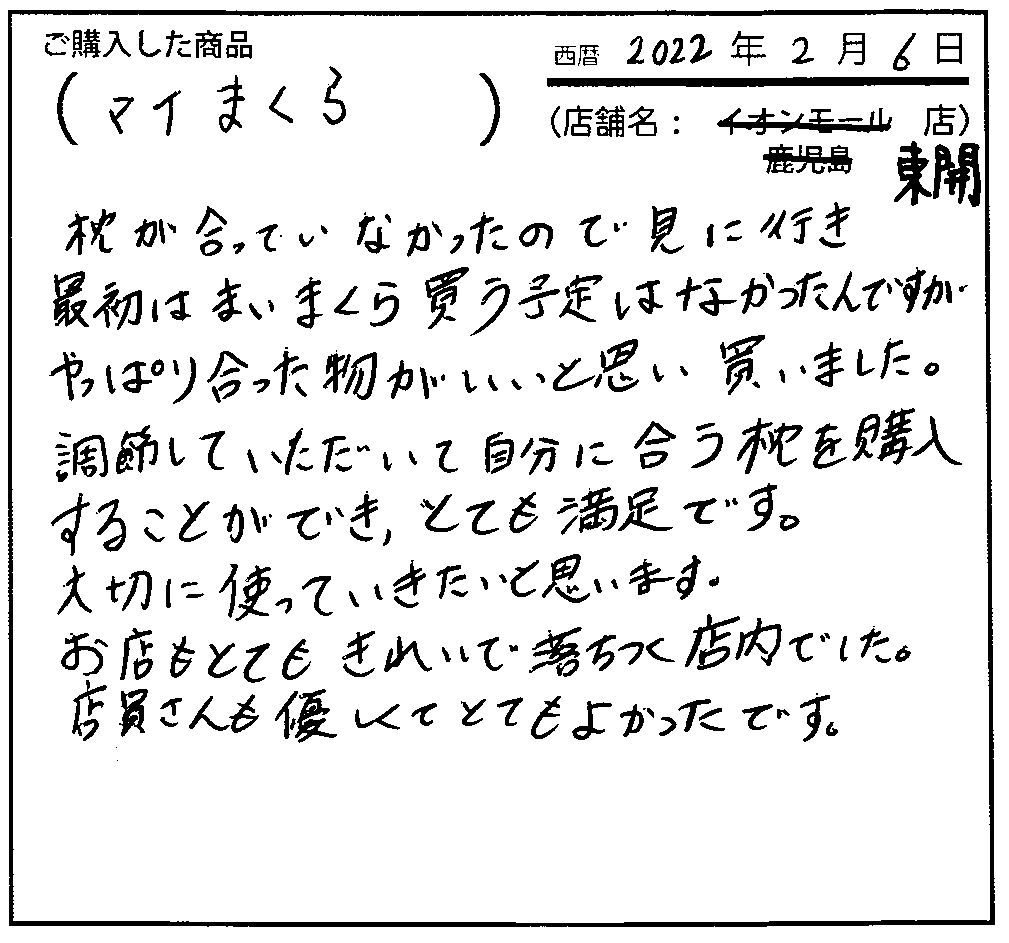 ご購入した商品
(マイまくら)
西暦 2022年2月6日
(店舗名: イオンモール 店)
鹿児島 東開
枕が合っていなかったので見に行き
最初はまいまくら買う予定はなかったんですが
やっぱり合った物がいいと思い買いました。
調節していただいて自分に合う枕を購入
することができ,とても満足です。
大切に使っていきたいと思います。
お店もとてもきれいで落ちつく店内でした。
店員さんも優しくてとてもよかったです。